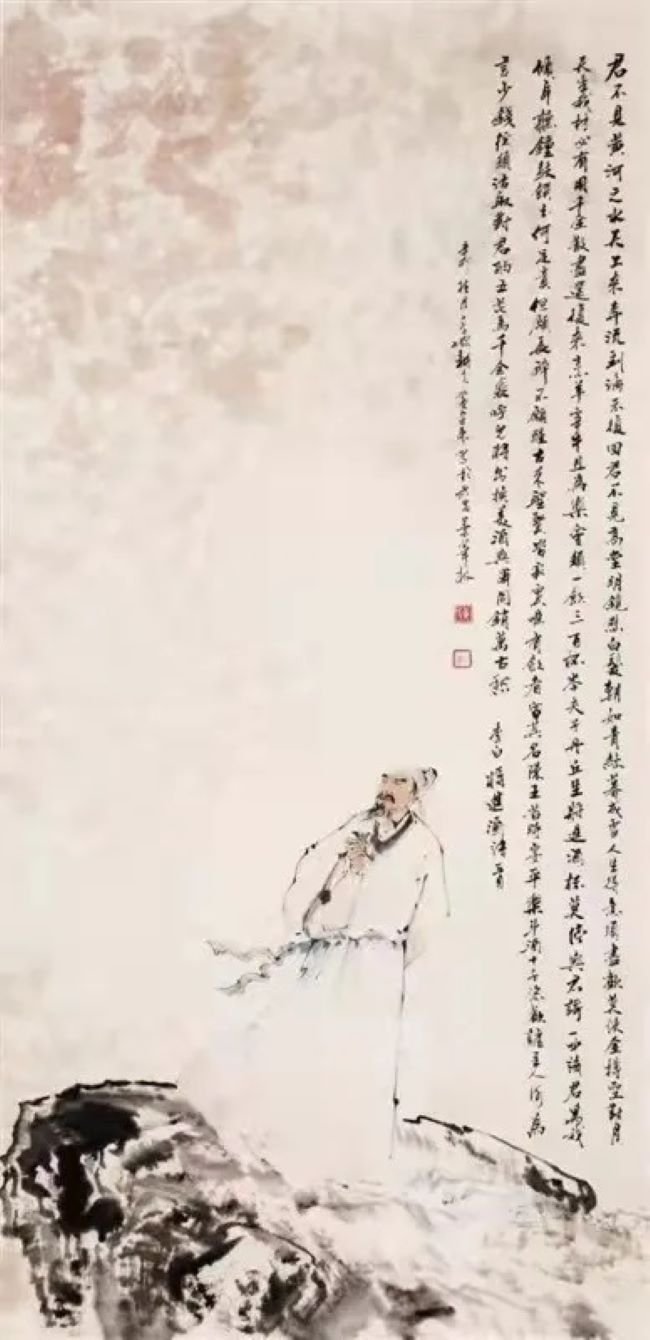 君不見黃河之水天上來奔流到海不復回君不見高堂明鏡悲白髮朝如青絲暮成雪人生得意須盡歡莫使金樽空對月
天生我材必有用千金散盡還復來烹羊宰牛且為樂會須一飲三百杯岑夫子丹丘生將進酒杯莫停與君歌一曲請君為我
傾耳聽鐘鼓饌玉何足貴但願長醉不願醒古來聖賢皆寂寞惟有飲者留其名陳王昔時宴平樂斗酒十千恣歡謔主人何為
言少錢徑須沽取對君酌五花馬千金裘呼兒將出換美酒與爾同銷萬古愁 李白將進酒詩一首